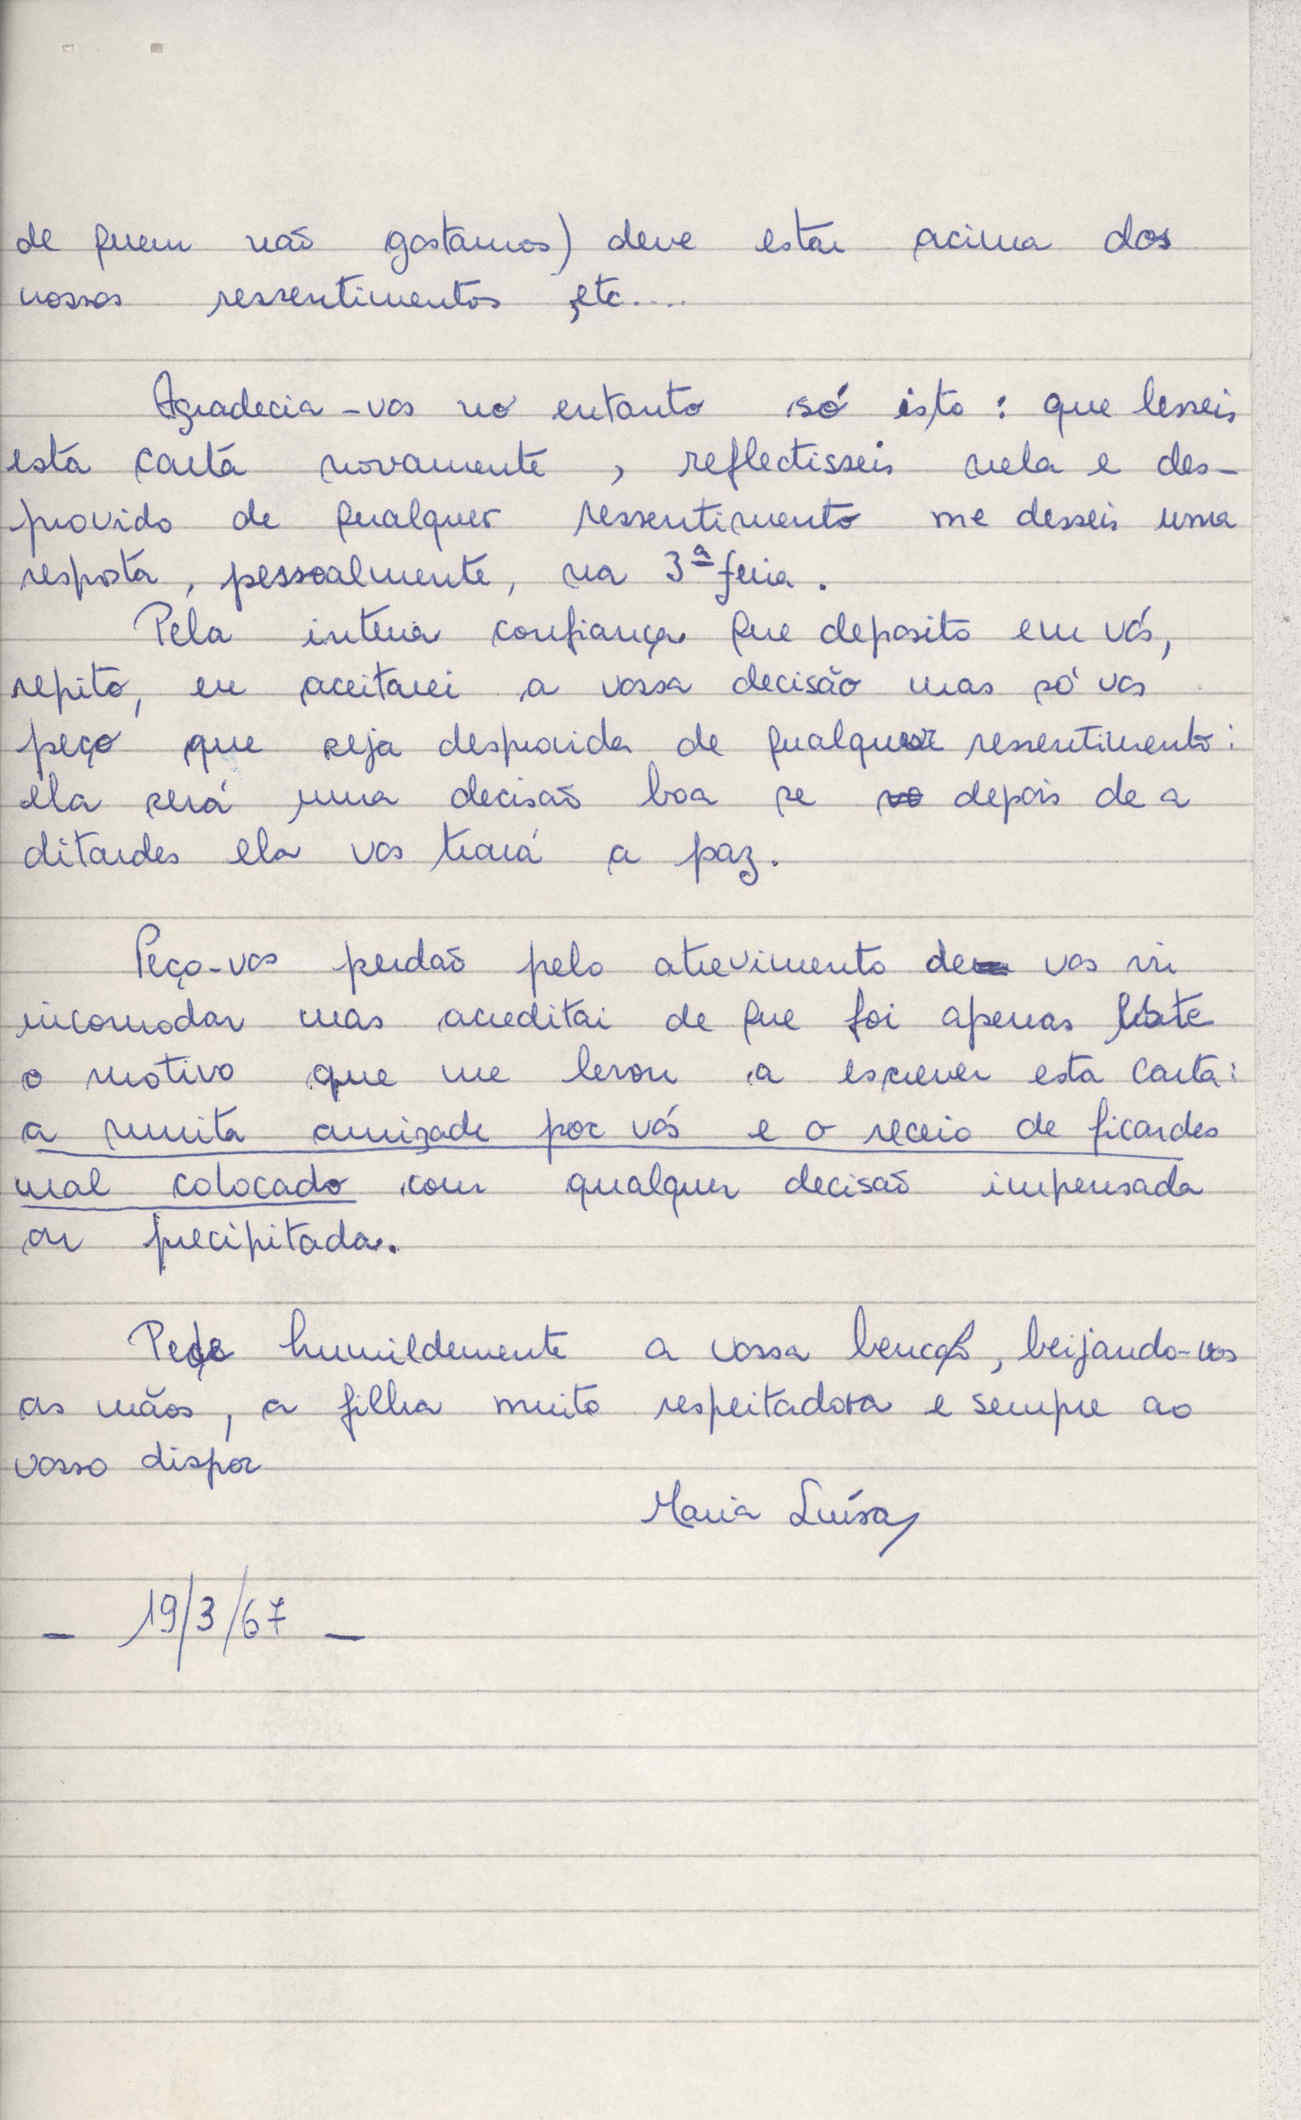 de quem não gostamos) deve estar acima dos
nossos ressentimentos, etc....
Agradecia-vos no entanto só isto: que lesseis
esta carta novamente, reflectisseis nela e des-
provido de qualquer ressentimento me desseis uma
resposta, pessoalmente, na 3ª feira.
Pela inteira confiança que deposito em vós,
repito, eu aceitarei a vossa decisão mas só vos
peço que seja desprovida de qualquer ressentimento:
ela será uma decisão boa se depois de a
ditardes ela vos trará a paz.
Peço-vos perdão pelo atrevimento de vos vir
incomodar mas acreditai de que foi apenas este
o motivo que me levou a escrever esta carta:
a muita amizade por vós e o receio de ficardes
mal colocado com qualquer decisão impensada
ou precipitada.
Pede humildemente a vossa benção, beijando-vos
as mãos, a filha muito respeitadora e sempre ao
vosso dispor
Maria Luísa
- 19/3/67 -